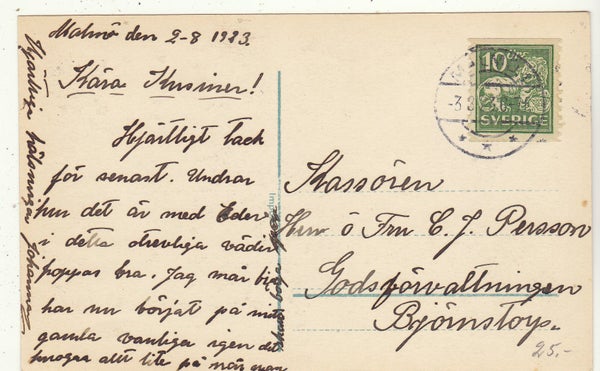 Malmö den 2-8 1923.
Kära Kusiner!
Hjärtligt tack
för senast. Undrar
hur det är med Eder
i detta otrevliga väder
hoppas bra. Jag mår bra
har nu börjat på mitt
gamla vanliga igen det
knogar allt lite på när man
Hjärtliga hälsningar Johanna
Kassören
Herr o Fru C. J. Persson
Godsförvaltningen
Björnstorp.
10 ÖRE
SVERIGE
-3.8.
25.-